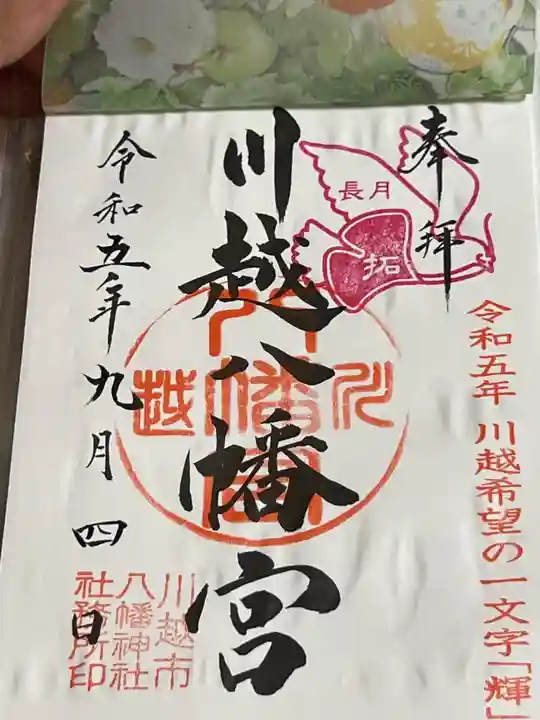 奉拝
長月
拓
令和五年 川越希望の一文字「輝」
川越八幡宮
川越
八幡宮
令和五年九月四日
川越市
八幡神社
社務所印